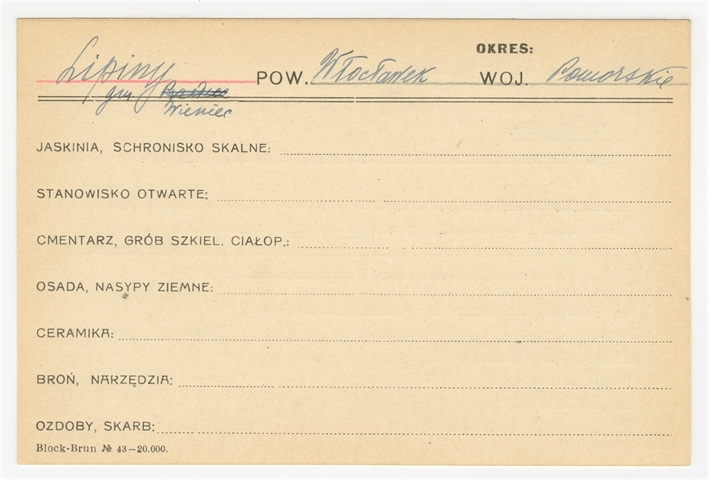 OKRES:
Lipiny POW. Włocławek WOJ. Pomorskie
gm. Wieniec
JASKINIA, SCHRONISKO SKALNE:
STANOWISKO OTWARTE:
CMENTARZ, GRÓB SZKIEL. CIAŁOP.:
OSADA, NASYPY ZIEMNE:
CERAMIKA:
BROŃ, NARZĘDZIA:
OZDOBY, SKARB:
Block-Brun № 43—20.000.